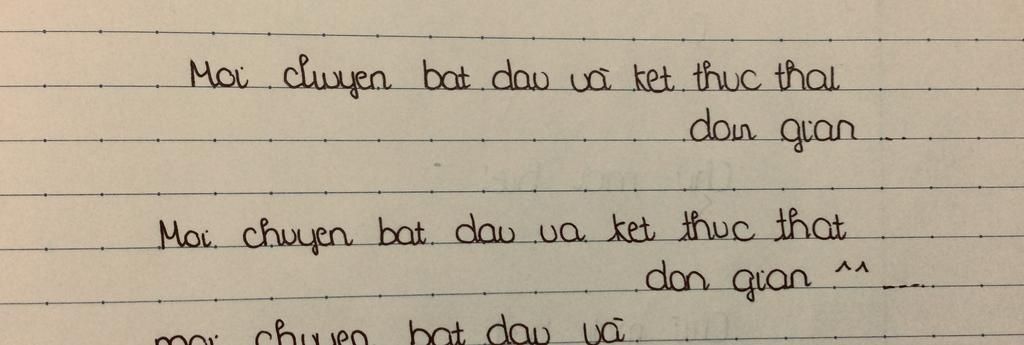 Moi chuyen bat dau và ket thuc that
don gian ...
Moi chuyen bat dau va ket thuc that
don gian ^^ ....
moi chuyen bat dau và